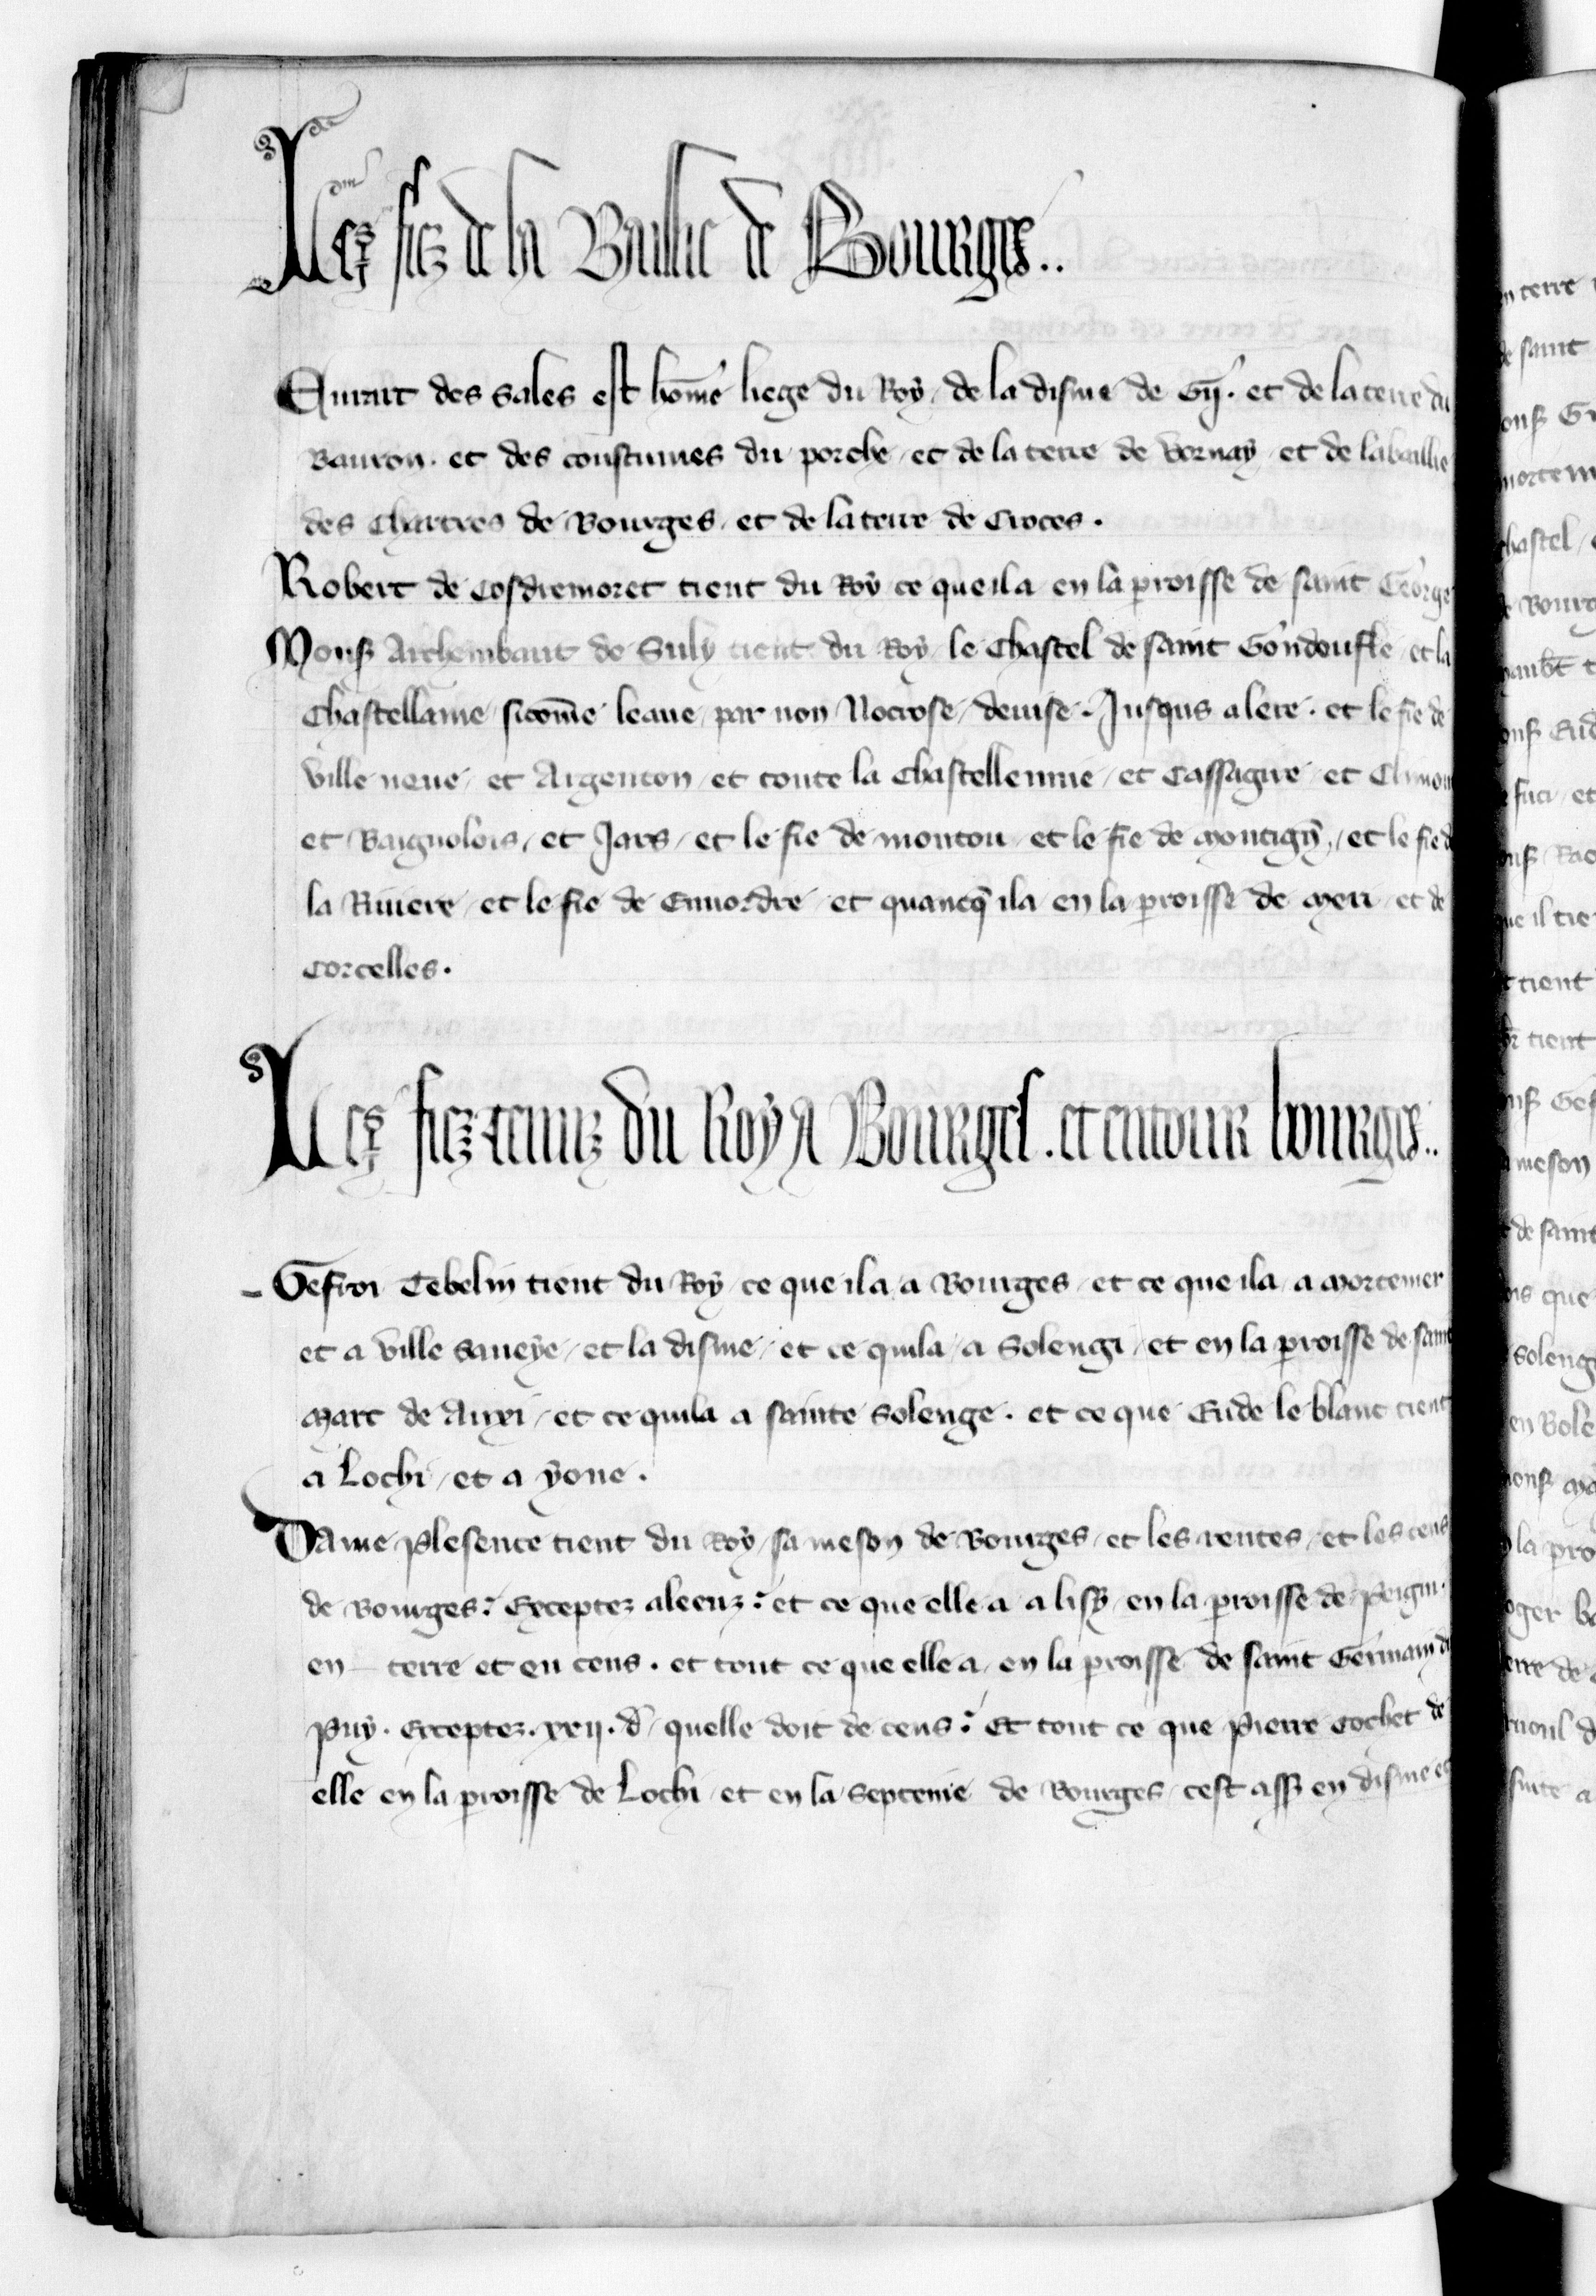 Les fiez de la Baillie de Bourges..
Evrart des Sales est hom̄e liege du Roy / de la disme de Gy. et de la terre du
Bauron. et des coustumes du porche / et de la terre de Vornay / et de la baillie
des Chartres de Bourges / et de la terre de Croces.
Robert de Cosdremoret tient du Roy ce que il a en la p̄roisse de saint George
Mons̄ Archembaut de Suly tient du Roy le Chastel de saint Gondoufle / et la
Chastellanie / sicom̄e leaue / par non Nocrose / devise. Jusqus a lere. et le fie de
ville neuve / et Argenton / et toute la Chastellenie / et Cassagne / et
et Baignolois / et Jars / et le fie de montou / et le fie de Montigny / et le fie de
la Riviere / et le fie de Ennordre / et quancq̄ il a en la p̄roisse de Meri / et de
Corcelles.
Les fiez tenuz du Roy A Bourges. et entour bourges..
Gefroi Tebelin tient du Roy / ce que il a a Bourges / et ce que il a a Mortemer
et a ville Saveye / et la disme / et ce quila / a Solengi / et en la p̄roisse de saint
Marc de Auxi / et ce quila a sainte Solenge. et ce que Eude le blanc tient
a Lochi / et a yone.
Dame Plesence tient du Roy / sa meson de Bourges / et les rentes / et les cens
de Bourges: Exceptez aleenz: et ce que elle a a lisy / en la p̄roisse de Poigni.
en terre et en cens. et tout ce que elle a / en la p̄roisse de saint Germain du
Puy. Exceptez. xxii. d̄ / quelle doit de cens: Et tout ce que Pierre Cochet de
elle en la p̄roisse de Lochi / et en la Septenie de Bourges / cest ass̄ en disme et